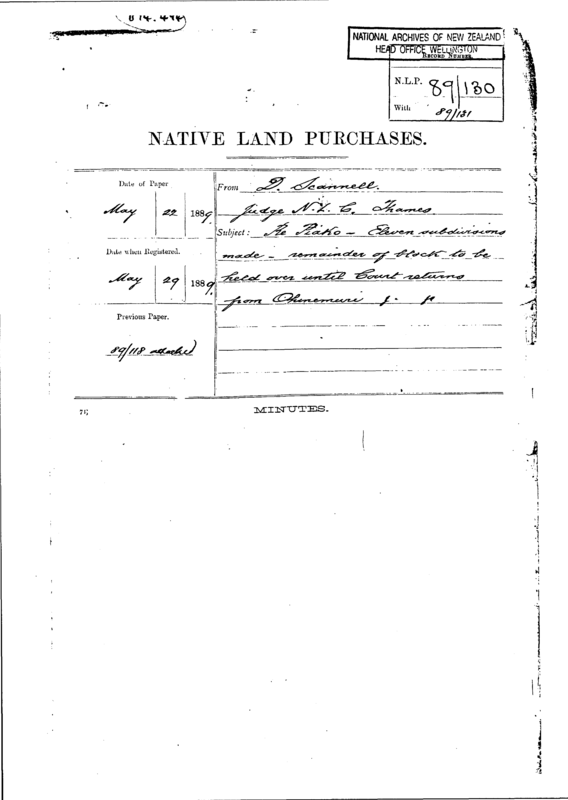 814.494
NATIONAL ARCHIVES OF NEW ZEALAND
HEAD OFFICE WELLINGTON
RECORD NUMBER
N.L.P. 89/130
With 89/131
NATIVE LAND PURCHASES.
Date of Paper
May 22 1889.
Date when Registered.
May 29 1889
Previous Paper.
89/118 attached
From D. Scannell.
Judge N.L.C. Thames
Subject: Re Piako – Eleven subdivisions
made – remainder of block to be
held over until Court returns
from Ohinemuri
MINUTES.